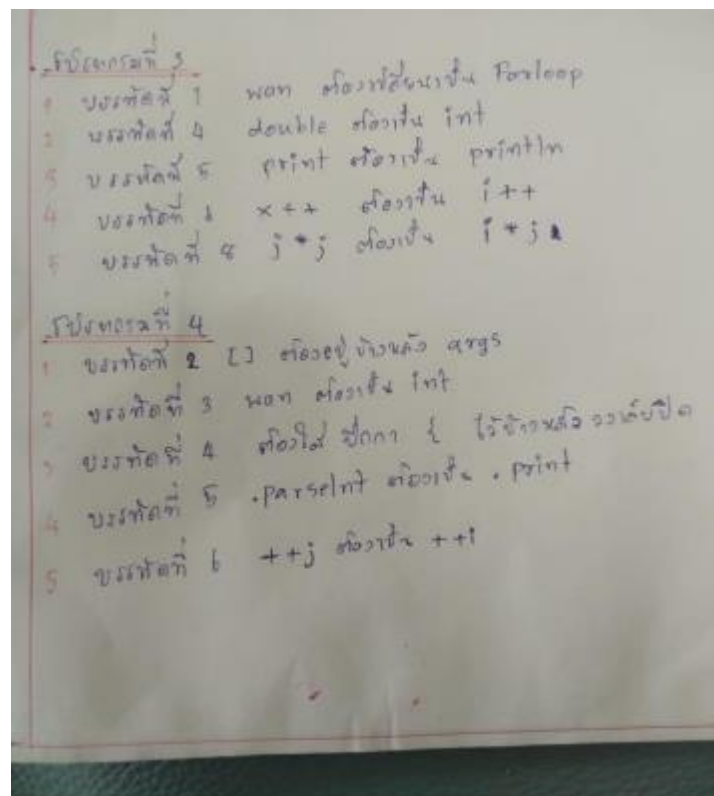 โปรแกรมที่ 3
1 บรรทัดที่ 1 ต้องเขียนเป็น Forloop
2 บรรทัดที่ 4 double ต้องเป็น int
3 บรรทัดที่ 5 print ต้องเป็น println
4 บรรทัดที่ 6 x++ ต้องเป็น i++
5 บรรทัดที่ 8 j*j ต้องเป็น i*j
โปรแกรมที่ 4
1 บรรทัดที่ 2 [] ต้องอยู่ข้างหลัง args
2 บรรทัดที่ 3 ต้องเป็น int
3 บรรทัดที่ 4 ต้องใส่ ปีกกา { ไว้ข้างหลัง วงเล็บปิด
4 บรรทัดที่ 5 .parseInt ต้องเป็น .print
5 บรรทัดที่ 6 ++j ต้องเป็น ++i